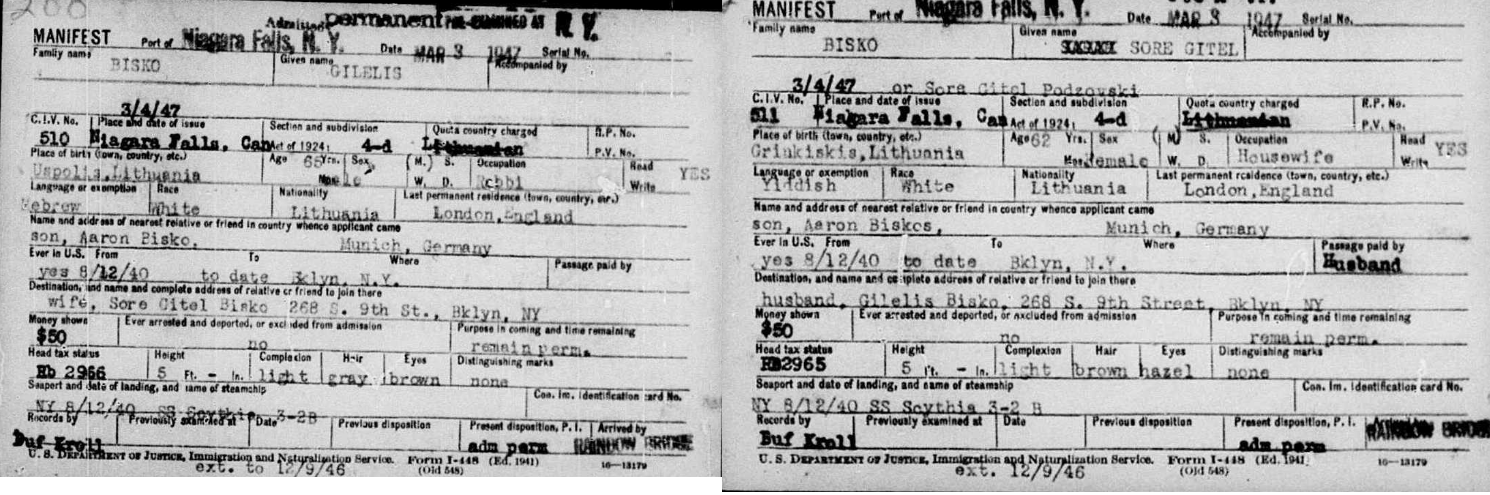 200
Admitted permanent PRE-EXAMINED AT N.Y.
MANIFEST Port of Niagara Falls, N. Y. Date MAR 3 1947 Serial No.
Family name Given name Accompanied by
BISKO GILELIS
3/4/47
C.I.V. No. Place and date of issue Section and subdivision Quota country charged R.P. No.
510 Niagara Falls, Can Act of 1924: 4-d Lithuanian P.V. No.
Place of birth (town, country, etc.) Age 65 Yrs. Sex (M.) S. Occupation Read YES
Uspolis, Lithuania Male W. D. Rebbi Write
Language or exemption Race Nationality Last permanent residence (town, country, etc.)
Hebrew White Lithuania London, England
Name and address of nearest relative or friend in country whence applicant came
son, Aaron Bisko, Munich, Germany
Ever in U.S. From To Where Passage paid by
yes 8/12/40 to date Bklyn, N.Y.
Destination, and name and complete address of relative or friend to join there
wife, Sore Gitel Bisko 268 S. 9th St., Bklyn, NY
Money shown Ever arrested and deported, or excluded from admission Purpose in coming and time remaining
$50 no remain perm.
Head tax status Height Complexion Hair Eyes Distinguishing marks
Rb 2966 5 Ft. - In. light gray brown none
Seaport and date of landing, and name of steamship Con. Im. Identification card No.
NY 8/12/40 SS Scythia 3-2B
Records by Previously examined at Date Previous disposition Present disposition, P. I. Arrived by
Buf Kroll adm perm RAINBOW BRIDGE
U. S. DEPARTMENT OF JUSTICE, Immigration and Naturalization Service. Form I-448 (Ed. 1941) 16—13179
ext. to 12/9/46 (Old 548)
MANIFEST Port of Niagara Falls, N. Y. Date MAR 3 1947 Serial No.
Family name Given name Accompanied by
BISKO SORE GITEL
3/4/47 or Sora Gitel Podzovski
C.I.V. No. Place and date of issue Section and subdivision Quota country charged R.P. No.
511 Niagara Falls, Can Act of 1924: 4-d Lithuanian P.V. No.
Place of birth (town, country, etc.) Age 62 Yrs. Sex (M) S. Occupation Read YES
Griukiskis, Lithuania female W. D. Housewife Write
Language or exemption Race Nationality Last permanent residence (town, country, etc.)
Yiddish White Lithuania London, England
Name and address of nearest relative or friend in country whence applicant came
son, Aaron Biskos, Munich, Germany
Ever in U.S. From To Where Passage paid by
yes 8/12/40 to date Bklyn, N.Y. Husband
Destination, and name and complete address of relative or friend to join there
husband, Gilelis Bisko, 268 S. 9th Street, Bklyn, NY
Money shown Ever arrested and deported, or excluded from admission Purpose in coming and time remaining
$50 no remain perm.
Head tax status Height Complexion Hair Eyes Distinguishing marks
Rb2965 5 Ft. - In. light brown hazel none
Seaport and date of landing, and name of steamship Con. Im. Identification card No.
NY 8/12/40 SS Scythia 3-2 B
Records by Previously examined at Date Previous disposition Present disposition, P. I.
Buf Kroll adm perm RAINBOW BRIDGE
U. S. DEPARTMENT OF JUSTICE, Immigration and Naturalization Service. Form I-448 (Ed. 1941) 16—13179
ext. 12/9/46 (Old 548)